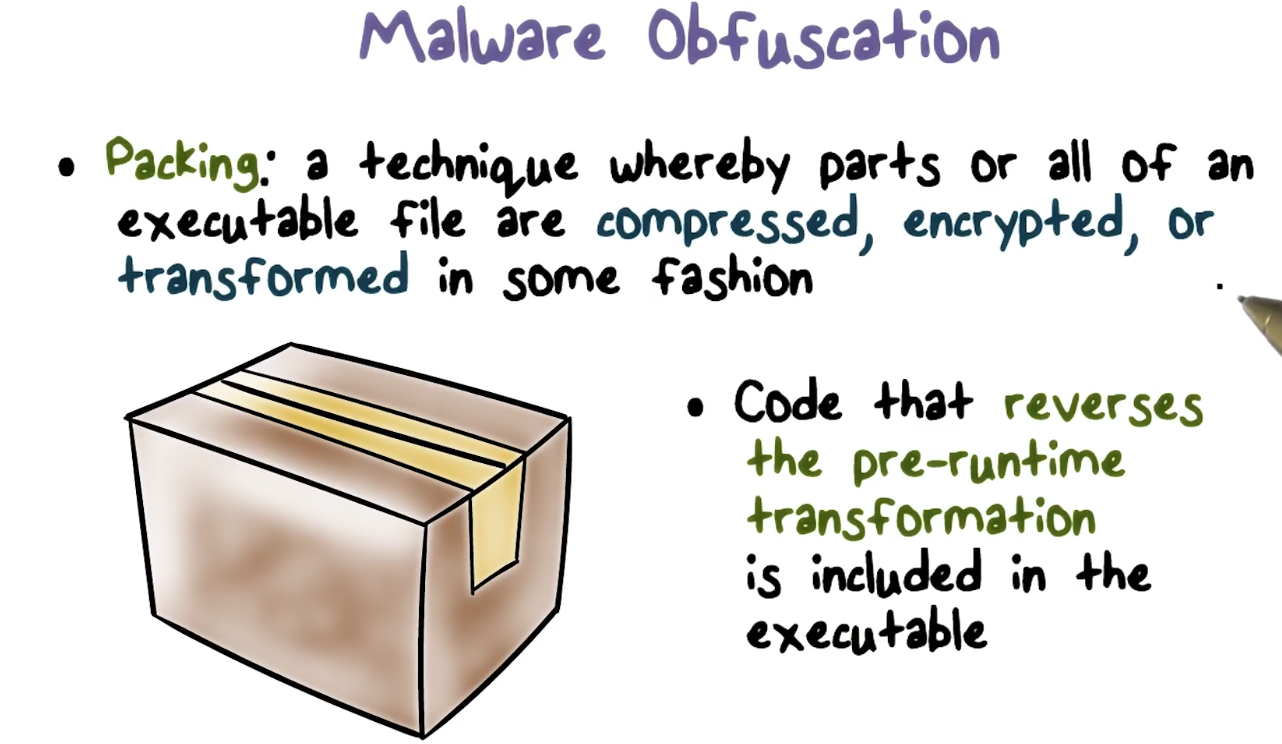 Malware Obfuscation
• Packing: a technique whereby parts or all of an
executable file are compressed, encrypted, or
transformed in some fashion
• Code that reverses
the pre-runtime
transformation
is included in the
executable